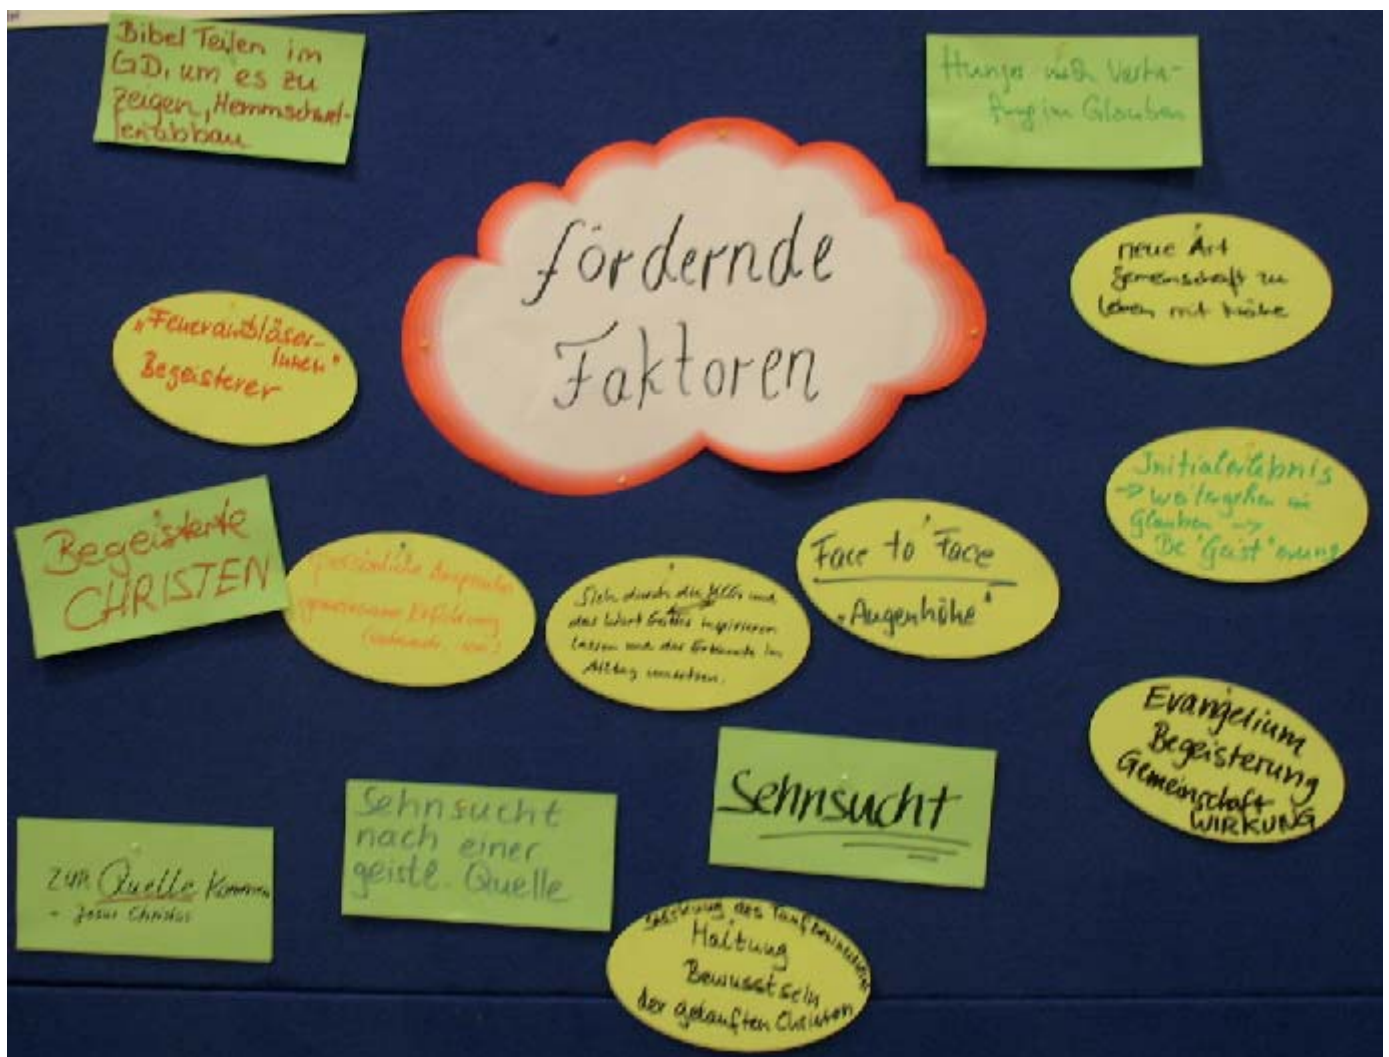 Bibel Teilen im
GD, um es zu
zeigen, Hemmschwel-
lenabbau
Hunger nach Vertie-
fung im Glauben
fördernde
Faktoren
neue Art
Gemeinschaft zu
leben mit Nähe
„Feueranbläser-
Innen"
Begeisterer
Initialerlebnis
→ weitergehen im
Glauben →
Be"Geist"erung
Begeisterte
CHRISTEN
persönliche Ansprache
gemeinsame Erfahrung
Sich durch die und
das Wort Gottes inspirieren
lassen und das Erkannte im
Alltag umsetzen.
Face to Face
„Augenhöhe"
Evangelium
Begeisterung
Gemeinschaft
WIRKUNG
Sehnsucht
Sehnsucht
nach einer
geistl. Quelle
zur Quelle kommen
- Jesus Christus
Stärkung des
Haltung
Bewusstsein
der getauften Christen